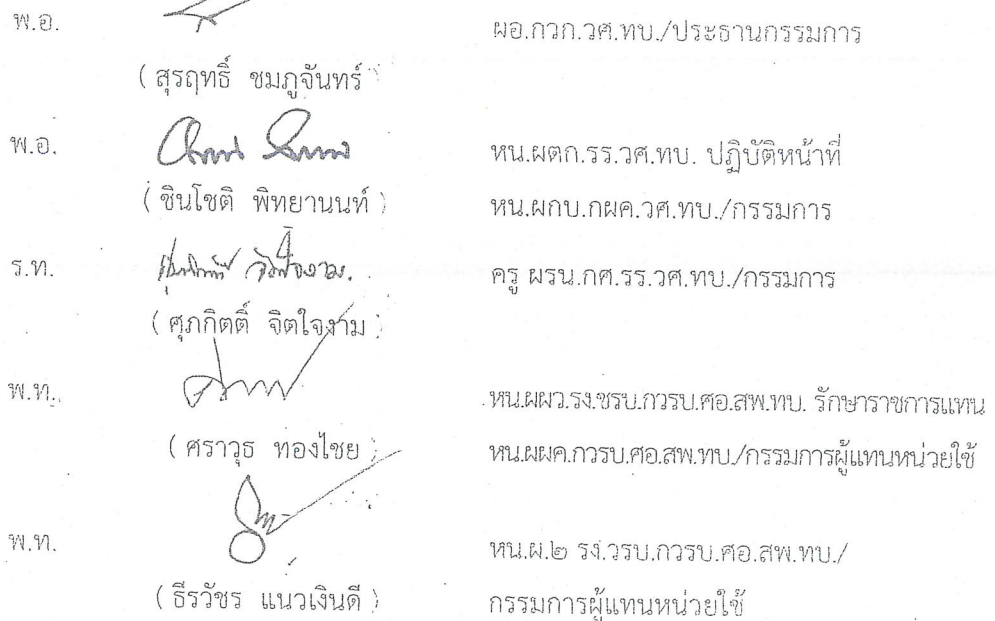 พ.อ. ผอ.กวก.วศ.ทบ./ประธานกรรมการ
( สุรฤทธิ์ ชมภูจันทร์ )
พ.อ. หน.ผตก.รร.วศ.ทบ. ปฏิบัติหน้าที่
( ชินโชติ พิทยานนท์ ) หน.ผกบ.กผค.วศ.ทบ./กรรมการ
ร.ท. ครู ผรน.กศ.รร.วศ.ทบ./กรรมการ
( ศุภกิตติ์ จิตใจงาม )
พ.ท. หน.ผผว.รง.ซรบ.กวรบ.ศอ.สพ.ทบ. รักษาราชการแทน
( ศราวุธ ทองไชย ) หน.ผผค.กวรบ.ศอ.สพ.ทบ./กรรมการผู้แทนหน่วยใช้
พ.ท. หน.ผ.๒ รง.วรบ.กวรบ.ศอ.สพ.ทบ./
( ธีรวัชร แนวเงินดี ) กรรมการผู้แทนหน่วยใช้